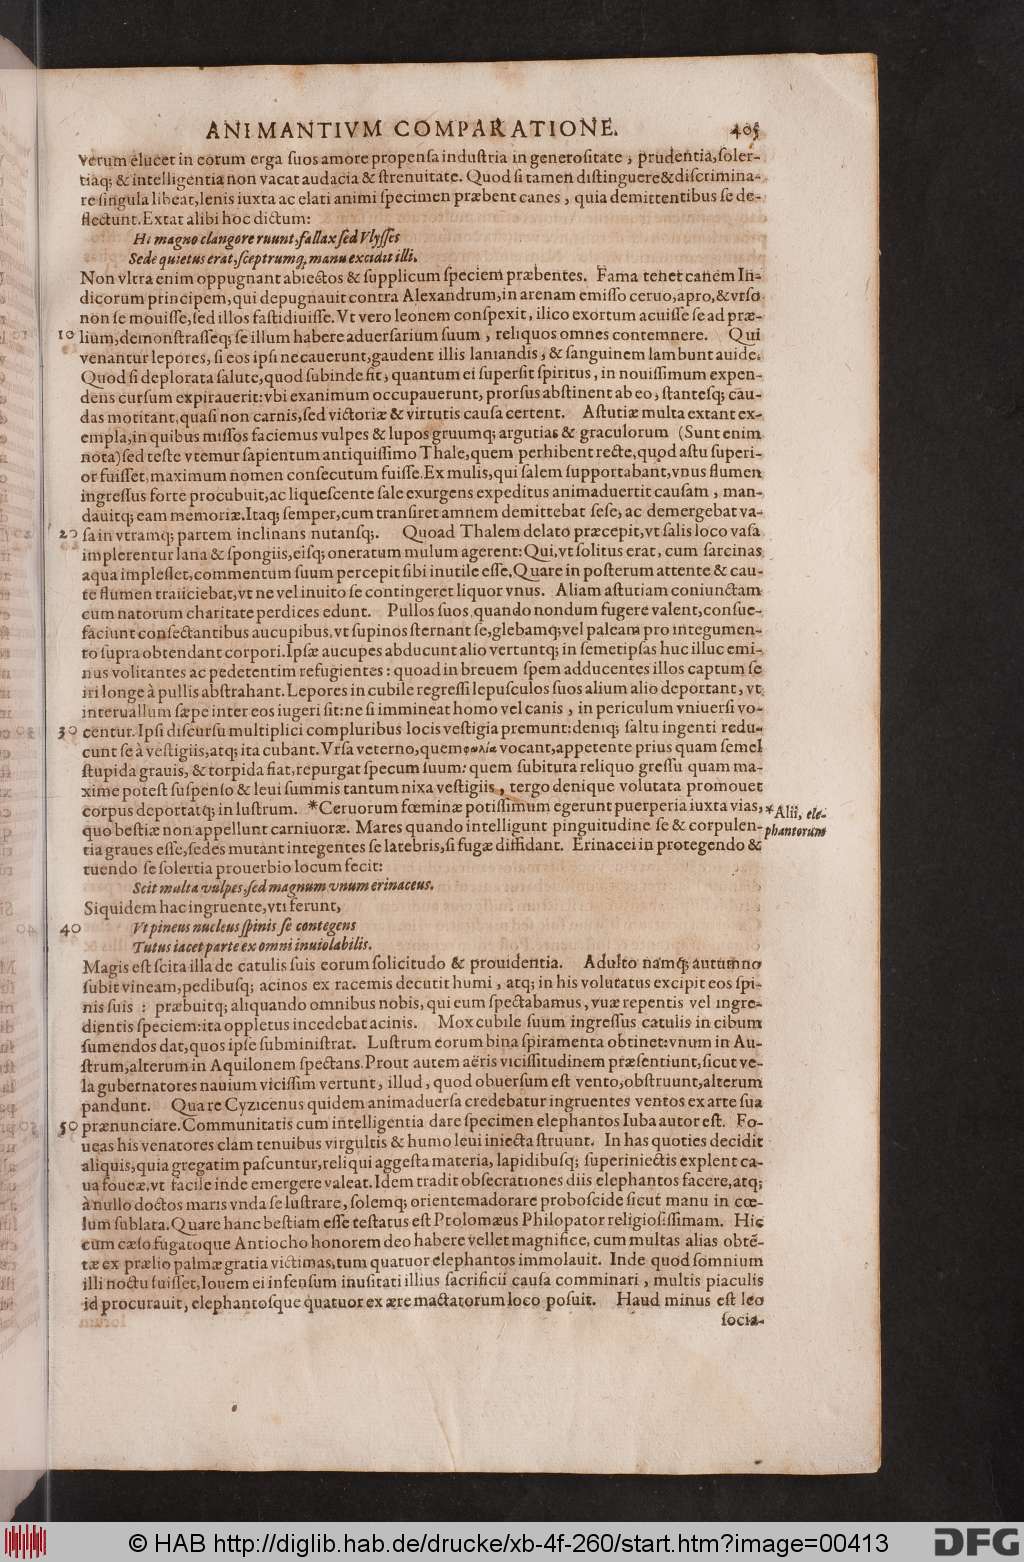 ANIMANTIVM COMPARATIONE. 405
Verum elucet in eorum erga ſuos amore propenſa induſtria in generoſitate, prudentia, ſoler-
tiaq; & intelligentia non vacat audacia & ſtrenuitate. Quod ſi tamen diſtinguere & diſcrimina-
re ſingula libeat, lenis iuxta ac elati animi ſpecimen præbent canes, quia demittentibus ſe de-
flectunt. Extat alibi hoc dictum:
Hi magno clangore ruunt, fallax ſed Vlyſſes
Sede quietus erat, ſceptrumq; manu excidit illi.
Non vltra enim oppugnant abiectos & ſupplicum ſpeciem præbentes. Fama tenet canem In-
dicorum principem, qui depugnauit contra Alexandrum, in arenam emiſſo ceruo, apro, & vrſo
non ſe mouiſſe, ſed illos faſtidiuiſſe. Vt vero leonem conſpexit, ilico exortum acuiſſe ſe ad præ-
10 lium, demonſtraſſeq; ſe illum habere aduerſarium ſuum, reliquos omnes contemnere. Qui
venantur lepores, ſi eos ipſi necauerunt, gaudent illis laniandis, & ſanguinem lambunt auide.
Quod ſi deplorata ſalute, quod ſubinde fit, quantum ei ſuperſit ſpiritus, in nouiſſimum expen-
dens curſum expirauerit: vbi exanimum occupauerunt, prorſus abſtinent ab eo, ſtantesq; cau-
das motitant, quaſi non carnis, ſed victoriæ & virtutis cauſa certent. Aſtutiæ multa extant ex-
empla, in quibus miſſos faciemus vulpes & lupos gruumq; argutias & graculorum (Sunt enim
nota) ſed teſte vtemur ſapientum antiquiſſimo Thale, quem perhibent recte, quod aſtu ſuperi-
or fuiſſet, maximum nomen conſecutum fuiſſe. Ex mulis, qui ſalem ſupportabant, vnus flumen
ingreſſus forte procubuit, ac liqueſcente ſale exurgens expeditus animaduertit cauſam, man-
dauitq; eam memoriæ. Itaq; ſemper, cum tranſiret amnem demittebat ſeſe, ac demergebat va-
20 ſa in vtramq; partem inclinans nutansq;. Quoad Thalem delato præcepit, vt ſalis loco vaſa
implerentur lana & ſpongiis, eiſq; oneratum mulum agerent: Qui, vt ſolitus erat, cum ſarcinas
aqua impleſſet, commentum ſuum percepit ſibi inutile eſſe. Quare in poſterum attente & cau-
te flumen traiiciebat, vt ne vel inuito ſe contingeret liquor vnus. Aliam aſtutiam coniunctam
cum natorum charitate perdices edunt. Pullos ſuos, quando nondum fugere valent, conſue-
faciunt conſectantibus aucupibus, vt ſupinos ſternant ſe, glebamq; vel paleam pro integumen-
to ſupra obtendant corpori. Ipſæ aucupes abducunt alio vertuntq; in ſemetipſas huc illuc emi-
nus volitantes ac pedetentim refugientes: quoad in breuem ſpem adducentes illos captum ſe
iri longe à pullis abſtrahant. Lepores in cubile regreſſi lepuſculos ſuos alium alio deportant, vt
interuallum ſæpe inter eos iugeri ſit: ne ſi immineat homo vel canis, in periculum vniuerſi vo-
30 centur. Ipſi diſcurſu multiplici compluribus locis veſtigia premunt: deniq; ſaltu ingenti redu-
cunt ſe à veſtigiis, atq; ita cubant. Vrſa veterno, quem φωλία vocant, appetente prius quam ſemel
ſtupida grauis, & torpida fiat, repurgat ſpecum ſuum: quem ſubitura reliquo greſſu quam ma-
xime poteſt ſuſpenſo & leui ſummis tantum nixa veſtigiis, tergo denique volutata promouet
corpus deportatq; in luſtrum. *Ceruorum fœminæ potiſſimum egerunt puerperia iuxta vias, *Alii, ele-
quo beſtiæ non appellunt carniuoræ. Mares quando intelligunt pinguitudine ſe & corpulen- phantorum
tia graues eſſe, ſedes mutant integentes ſe latebris, ſi fugæ diffidant. Erinacei in protegendo &
tuendo ſe ſolertia prouerbio locum fecit:
Scit multa vulpes, ſed magnum vnum erinaceus.
Siquidem hac ingruente, vti ferunt,
40 Vt pineus nucleus ſpinis ſe contegens
Tutus iacet parte ex omni inuiolabilis.
Magis eſt ſcita illa de catulis ſuis eorum ſolicitudo & prouidentia. Adulto namq; autumno
ſubit vineam, pedibuſq; acinos ex racemis decutit humi, atq; in his volutatus excipit eos ſpi-
nis ſuis: præbuitq; aliquando omnibus nobis, qui eum ſpectabamus, vuæ repentis vel ingre-
dientis ſpeciem: ita oppletus incedebat acinis. Mox cubile ſuum ingreſſus catulis in cibum
ſumendos dat, quos ipſe ſubminiſtrat. Luſtrum eorum bina ſpiramenta obtinet: vnum in Au-
ſtrum, alterum in Aquilonem ſpectans. Prout autem aëris viciſſitudinem præſentiunt, ſicut ve-
la gubernatores nauium viciſſim vertunt, illud, quod obuerſum eſt vento, obſtruunt, alterum
pandunt. Quare Cyzicenus quidem animaduerſa credebatur ingruentes ventos ex arte ſua
50 prænunciare. Communitatis cum intelligentia dare ſpecimen elephantos Iuba autor eſt. Fo-
ueas his venatores clam tenuibus virgultis & humo leui iniecta ſtruunt. In has quoties decidit
aliquis, quia gregatim paſcuntur, reliqui aggeſta materia, lapidibuſq; ſuperiniectis explent ca-
ua foueæ, vt facile inde emergere valeat. Idem tradit obſecrationes diis elephantos facere, atq;
à nullo doctos maris vnda ſe luſtrare, ſolemq; orientem adorare proboſcide ſicut manu in cœ-
lum ſublata. Quare hanc beſtiam eſſe teſtatus eſt Ptolomæus Philopator religioſiſſimam. Hic
cum cæſo fugatoque Antiocho honorem deo habere vellet magnifice, cum multas alias obtē-
tæ ex prælio palmæ gratia victimas, tum quatuor elephantos immolauit. Inde quod ſomnium
illi noctu fuiſſet, Iouem ei infenſum inuſitati illius ſacrificii cauſa comminari, multis piaculis
id procurauit, elephantoſque quatuor ex ære mactatorum loco poſuit. Haud minus eſt leo
ſocia-
© HAB http://diglib.hab.de/drucke/xb-4f-260/start.htm?image=00413
DFG